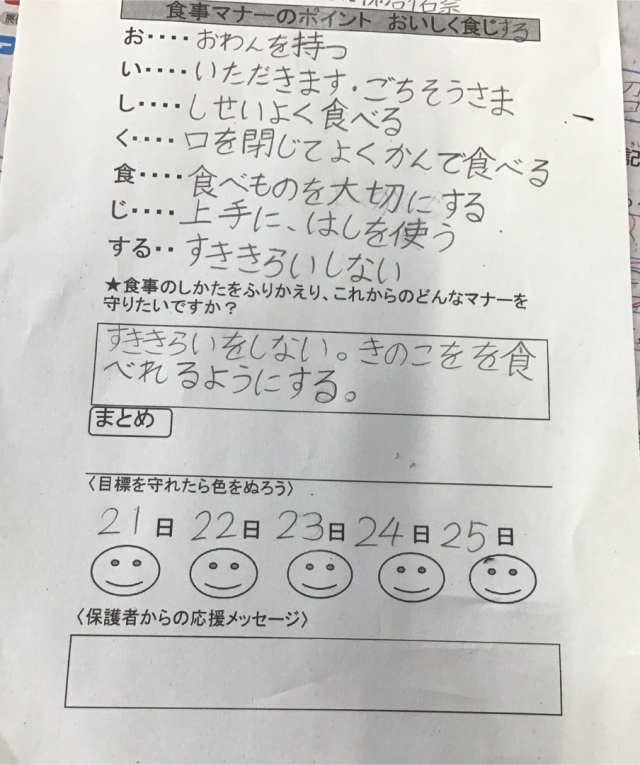 食事マナーのポイント おいしく食じする
お････おわんを持つ
い････いただきます・ごちそうさま
し････しせいよく食べる
く････口を閉じてよくかんで食べる
食････食べものを大切にする
じ････上手に、はしを使う
する･･すききらいしない
★食事のしかたをふりかえり、これからのどんなマナーを
守りたいですか？
すききらいをしない。きのこをを食
べれるようにする。
まとめ
〈目標を守れたら色をぬろう〉
21日 22日 23日 24日 25日
〈保護者からの応援メッセージ〉